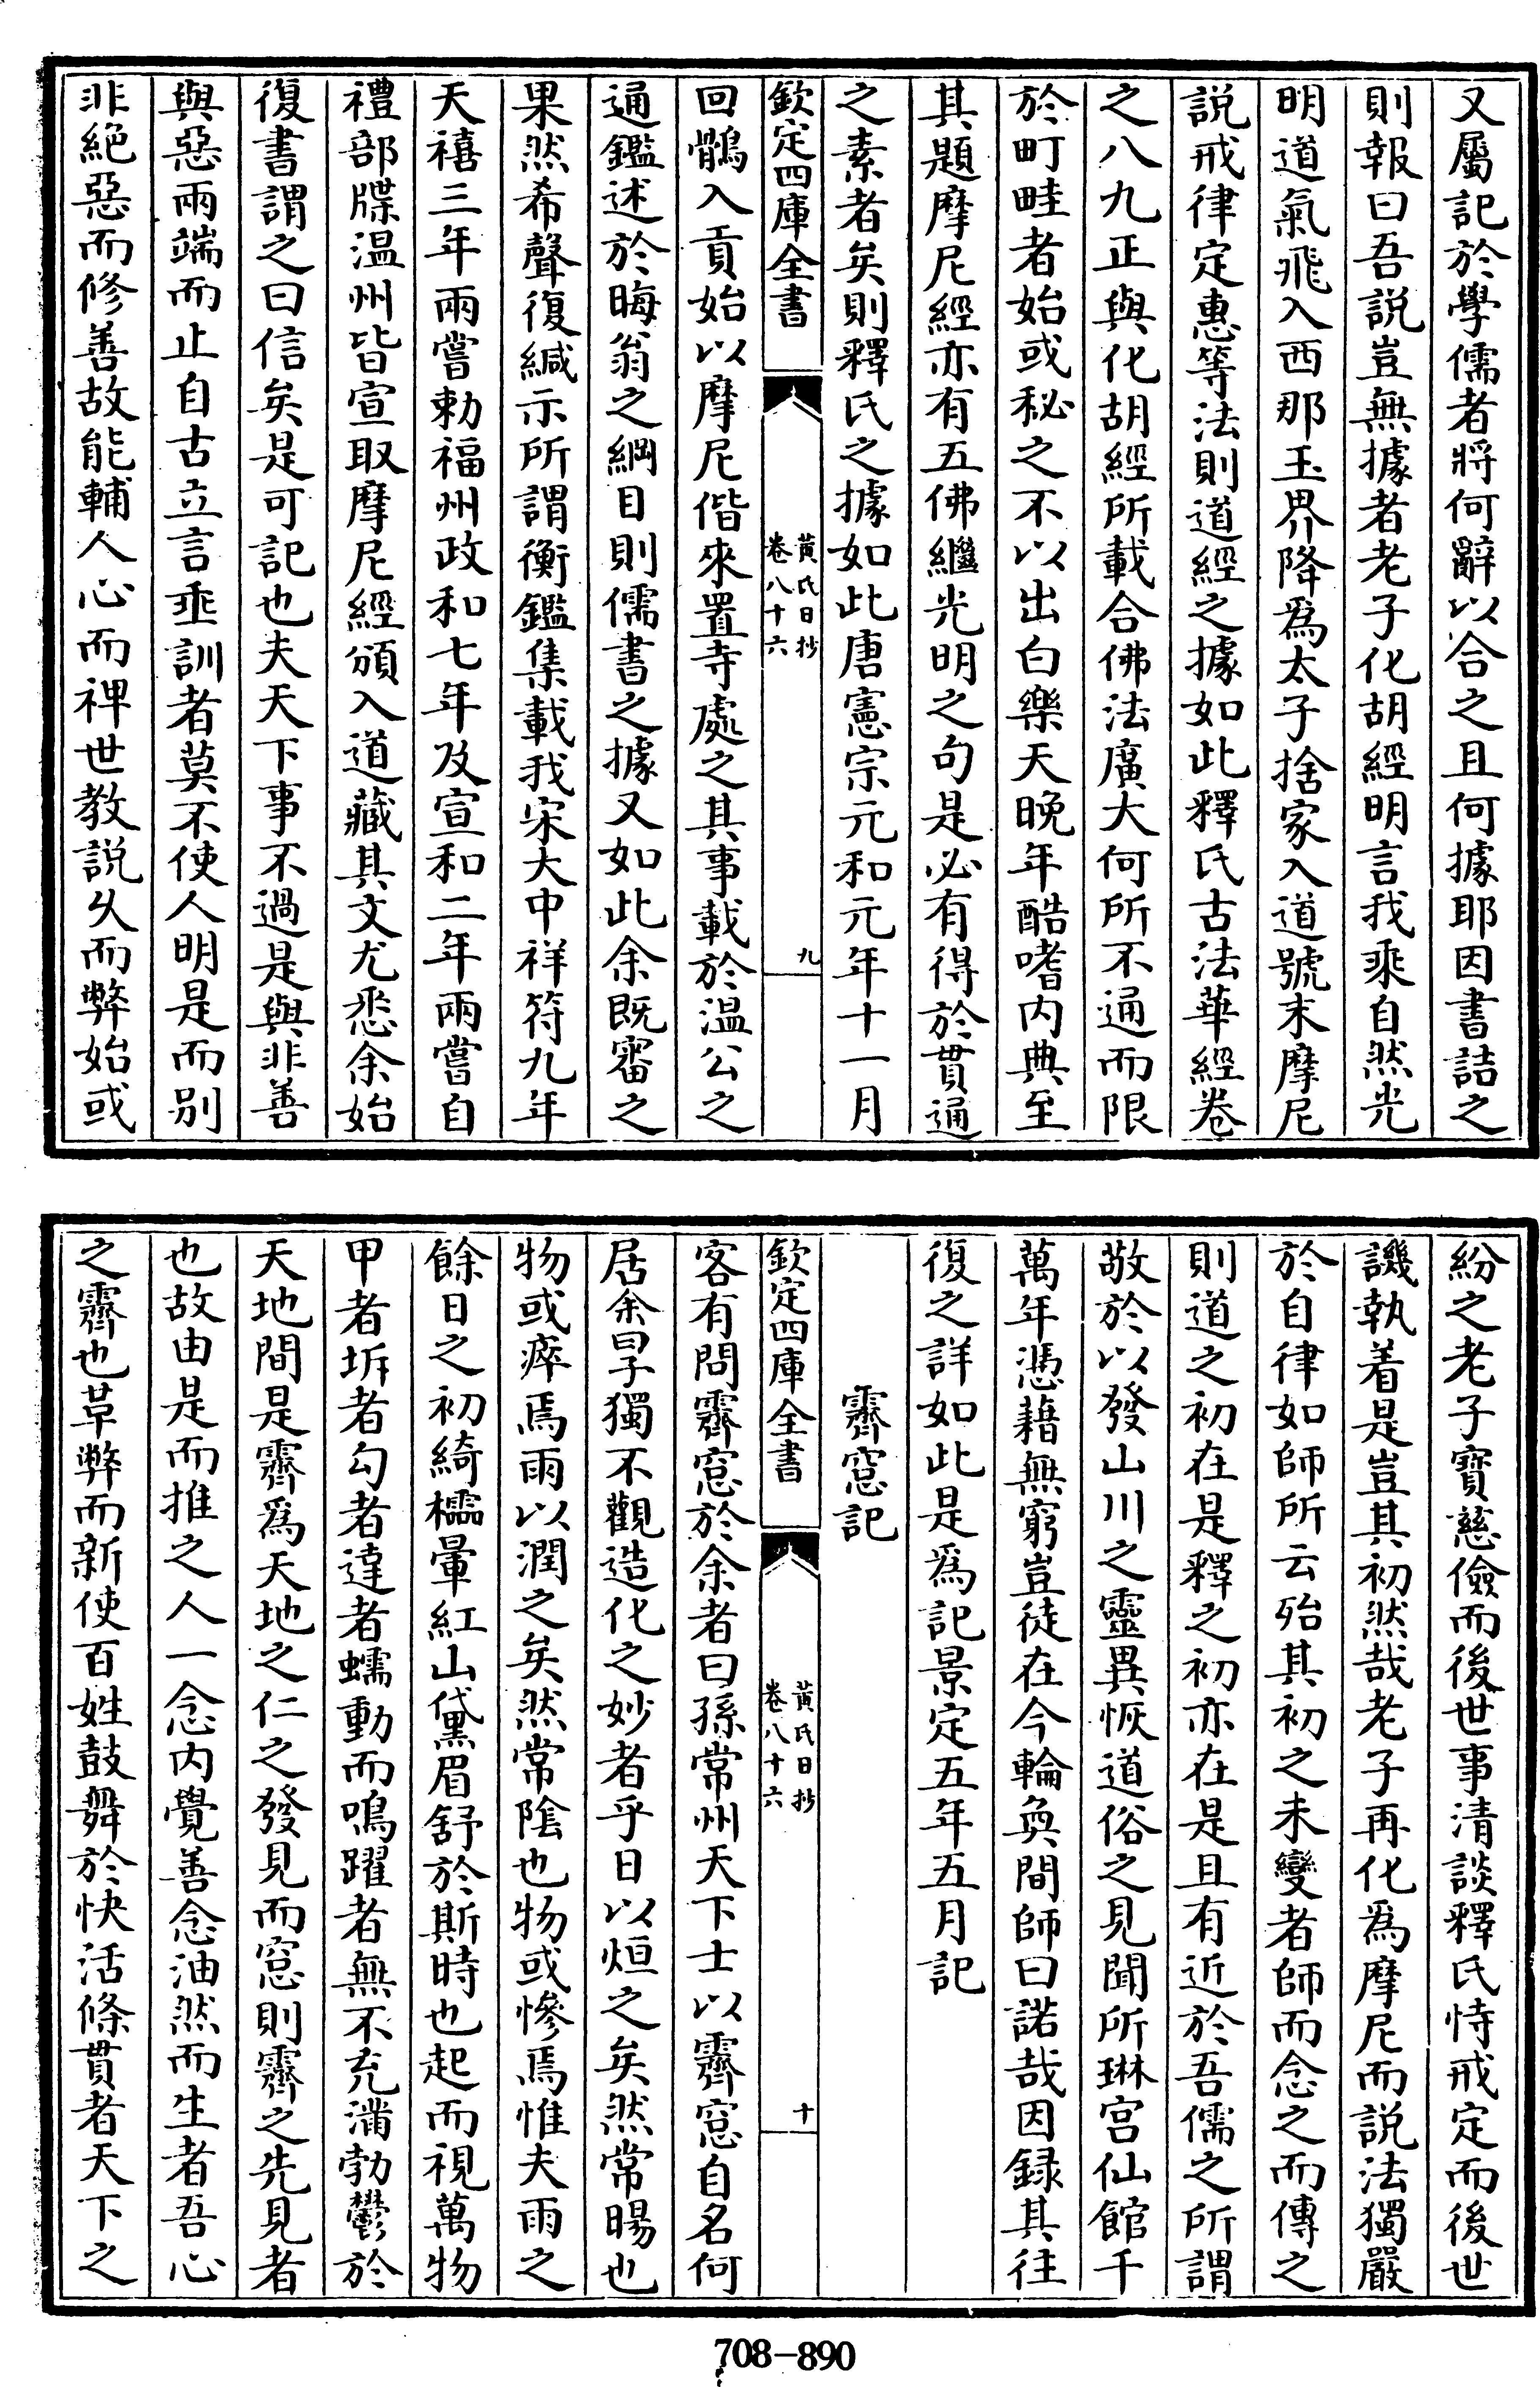 又屬記於學儒者將何辭以合之且何據耶因書詰之
則報曰吾說豈無據者老子化胡經明言我乘自然光
明道氣飛入西那玉界降爲太子捨家入道號末摩尼
說戒律定惠等法則道經之據如此釋氏古法華經卷
之八九正與化胡經所載合佛法廣大何所不通而限
於町畦者始或秘之不以出白樂天晚年酷嗜内典至
其題摩尼經亦有五佛繼光明之句是必有得於貫通
之素者矣則釋氏之據如此唐憲宗元和元年十一月
欽定四庫全書
黄氏日抄
卷八十六
九
回鶻入貢始以摩尼偕來置寺處之其事載於温公之
通鑑述於晦翁之綱目則儒書之據又如此余既審之
果然希聲復緘示所謂衡鑑集載我宋大中祥符九年
天禧三年兩嘗勅福州政和七年及宣和二年兩嘗自
禮部牒温州皆宣取摩尼經頒入道藏其文尤悉余始
復書謂之曰信矣是可記也夫天下事不過是與非善
與惡兩端而止自古立言垂訓者莫不使人明是而别
非絶惡而修善故能輔人心而禆世教說乆而弊始或
紛之老子寶慈儉而後世事清談釋氏恃戒定而後世
譏執着是豈其初然哉老子再化爲摩尼而説法獨嚴
於自律如師所云殆其初之未變者師而念之而傳之
則道之初在是釋之初亦在是且有近於吾儒之所謂
敬於以發山川之靈異恢道俗之見聞所琳宫仙館千
萬年憑藉無窮豈徒在今輪奐間師曰諾哉因録其往
復之詳如此是爲記景定五年五月記
霽窓記
欽定四庫全書
黄氏日抄
卷八十六
十
客有問霽窓於余者曰孫常州天下士以霽窓自名何
居余曰子獨不觀造化之妙者乎日以烜之矣然常暘也
物或瘁焉雨以潤之矣然常隂也物或慘焉惟夫雨之
餘日之初綺櫺暈紅山黛眉舒於斯時也起而視萬物
甲者坼者勾者達者蠕動而鳴躍者無不充滿勃鬱於
天地間是霽爲天地之仁之發見而窓則霽之先見者
也故由是而推之人一念内覺善念油然而生者吾心
之霽也革弊而新使百姓鼓舞於快活條貫者天下之
708-890